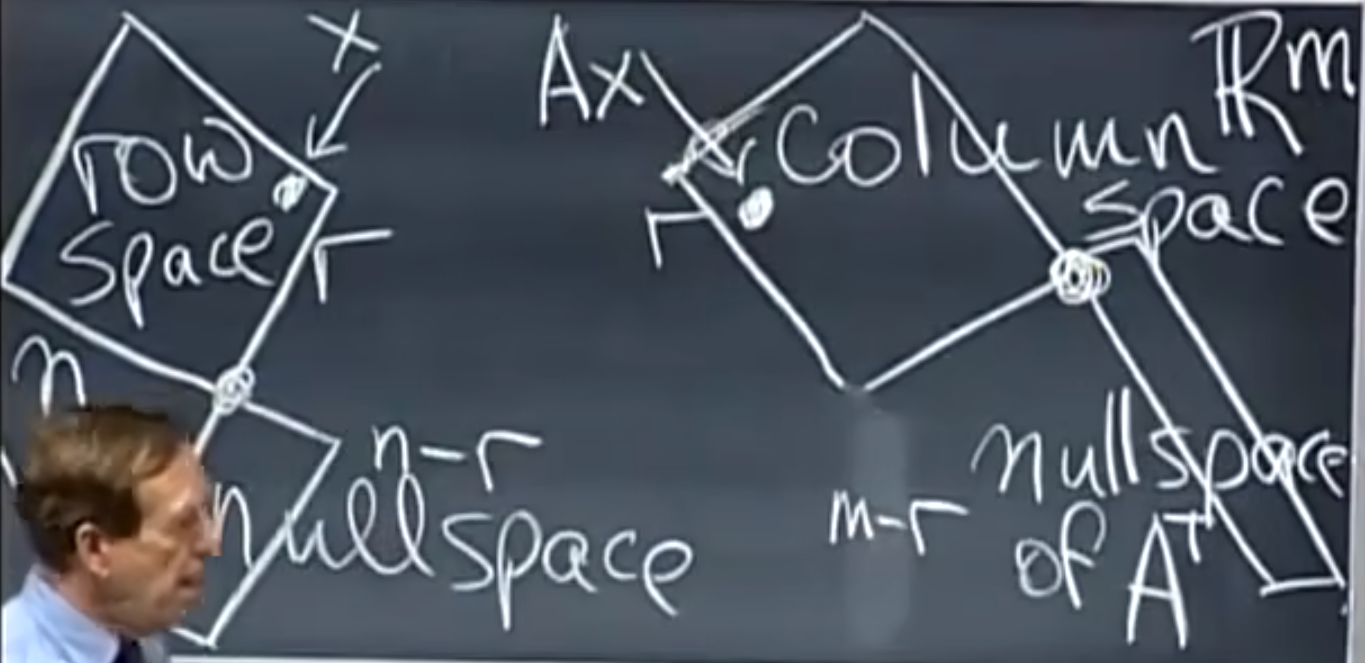 x
row
space
r
n
n-r
nullspace
Ax
Column
space
ℝᵐ
r
m-r
nullspace
of Aᵀ